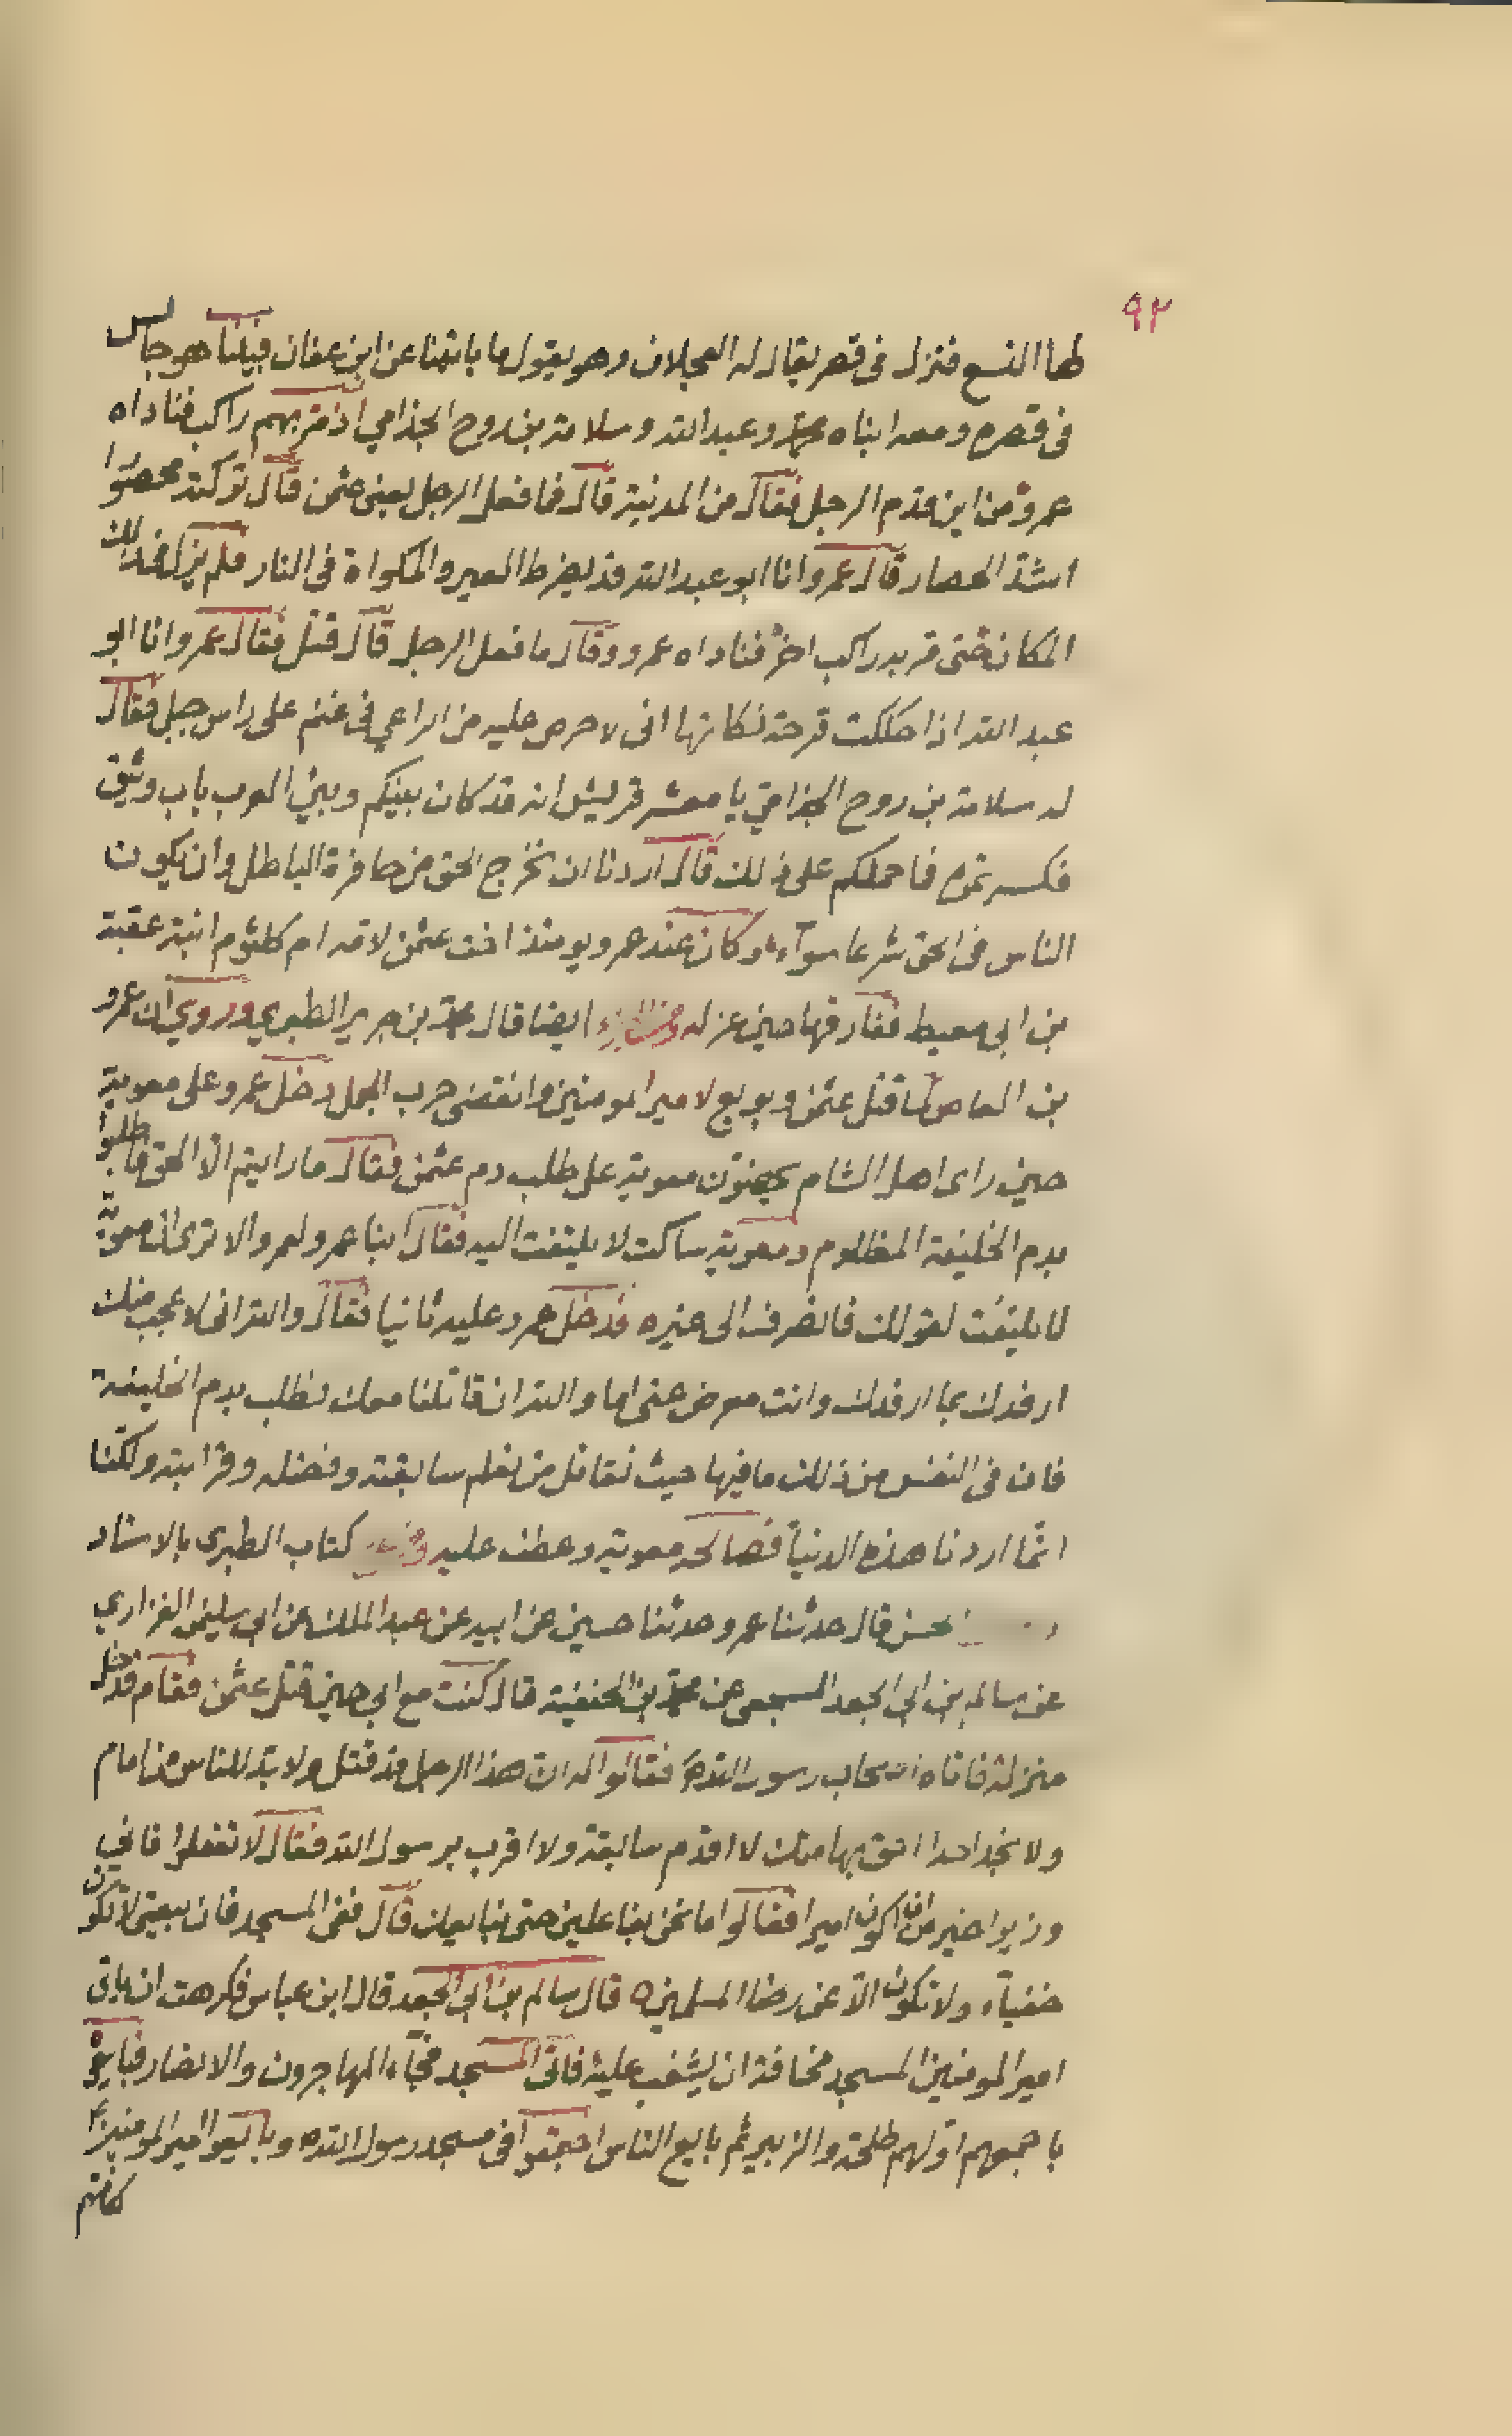 ٩٢
لها السبع فنزل فى قصر يقال له العجلان وهو يقول ما ياتينا عن ابن عفان فبينا هو جالس
فى قصره ومعه ابناه محمد وعبد الله وسلامة بن روح الجذامي اذ مر بهم راكب فناداه
عمرو من اين قدم الرجل فقال من المدينة قال فما فعل الرجل يعنى عثمن قال تركته محصورا
اشد الحصار قال عمرو انا ابو عبد الله قد يضرط العير والمكواة فى النار فلم يزل فى ذلك
المكان حتى مر به راكب اخر فناداه عمرو وقال ما فعل الرجل قال قتل فقال عمرو انا ابو
عبد الله اذا حككت قرحة نكاتها انى لاحرص عليه من الراعي فى غنم على راس جبل فقال
له سلامة بن روح الجذامي يا معشر قريش انه قد كان بينكم وبين العرب باب وثيق
فكسرتموه فما حملكم على ذلك قال اردنا ان نخرج الحق من حافرة الباطل وان يكون
الناس فى الحق شرعا سوآء وكان عند عمرو يومئذ اخت عثمن لامه ام كلثوم ابنة عقبة
بن ابى معيط ففارقها حين عزله ايضا قال محمد بن جرير الطبري وروي ان عمرو
بن العاص لما قتل عثمن وبويع لامير المومنين وانقضى حرب الجمل دخل عمرو على معوية
حين راى اهل الشام يحضون معوية على طلب دم عثمن فقال ما رايتم الا الحق فاطلبوا
بدم الخليفة المظلوم ومعوية ساكت لا يلتفت اليه فقال ابنا عمرو لعمرو الا ترى ان معوية
لا يلتفت لقولك فانصرف الى غيره فدخل عمرو عليه ثانيا فقال والله انى لاعجب منك
ارفدك بما ارفدك وانت معرض عنى اما والله ان قاتلنا معك نطلب بدم الخليفة
فان فى النفس من ذلك ما فيها حيث نقاتل من نعلم سابقته وفضله وقرابته ولكنا
انما اردنا هذه الدنيا فصالحه معوية وعطف عليه كتاب الطبرى بالاسناد
محسن قال حدثنا عمرو حدثنا حسين عن ابيه عن عبد الملك عن ابي سليمن الفزاري
عن سالم بن ابي الجعد الشجعى عن محمد بن الحنفية قال كنت مع ابي حين قتل عثمن فقام فدخل
منزله فاتاه اصحاب رسول الله فقالوا له ان هذا الرجل قد قتل ولا بد للناس من امام
ولا نجد احدا احق بها منك لا اقدم سابقة ولا اقرب برسول الله فقال لا تفعلوا فاني
وزيرا خير من ان اكون اميرا فقالوا ما نحن بفاعلين حتى نبايعك قال ففى المسجد فان بيعتى لا تكون
خفياء ولا تكون الا عن رضا المسلمين قال سالم بن ابي الجعد قال ابن عباس فكرهت ان ياتى
امير المومنين المسجد مخافة ان يشغب عليه فاتى المسجد فجآء المهاجرون والانصار فبايعوه
باجمعهم اولهم طلحة والزبير ثم بايع الناس اجمعوا فى مسجد رسول الله وبايعوا امير المومنين
كافتهم